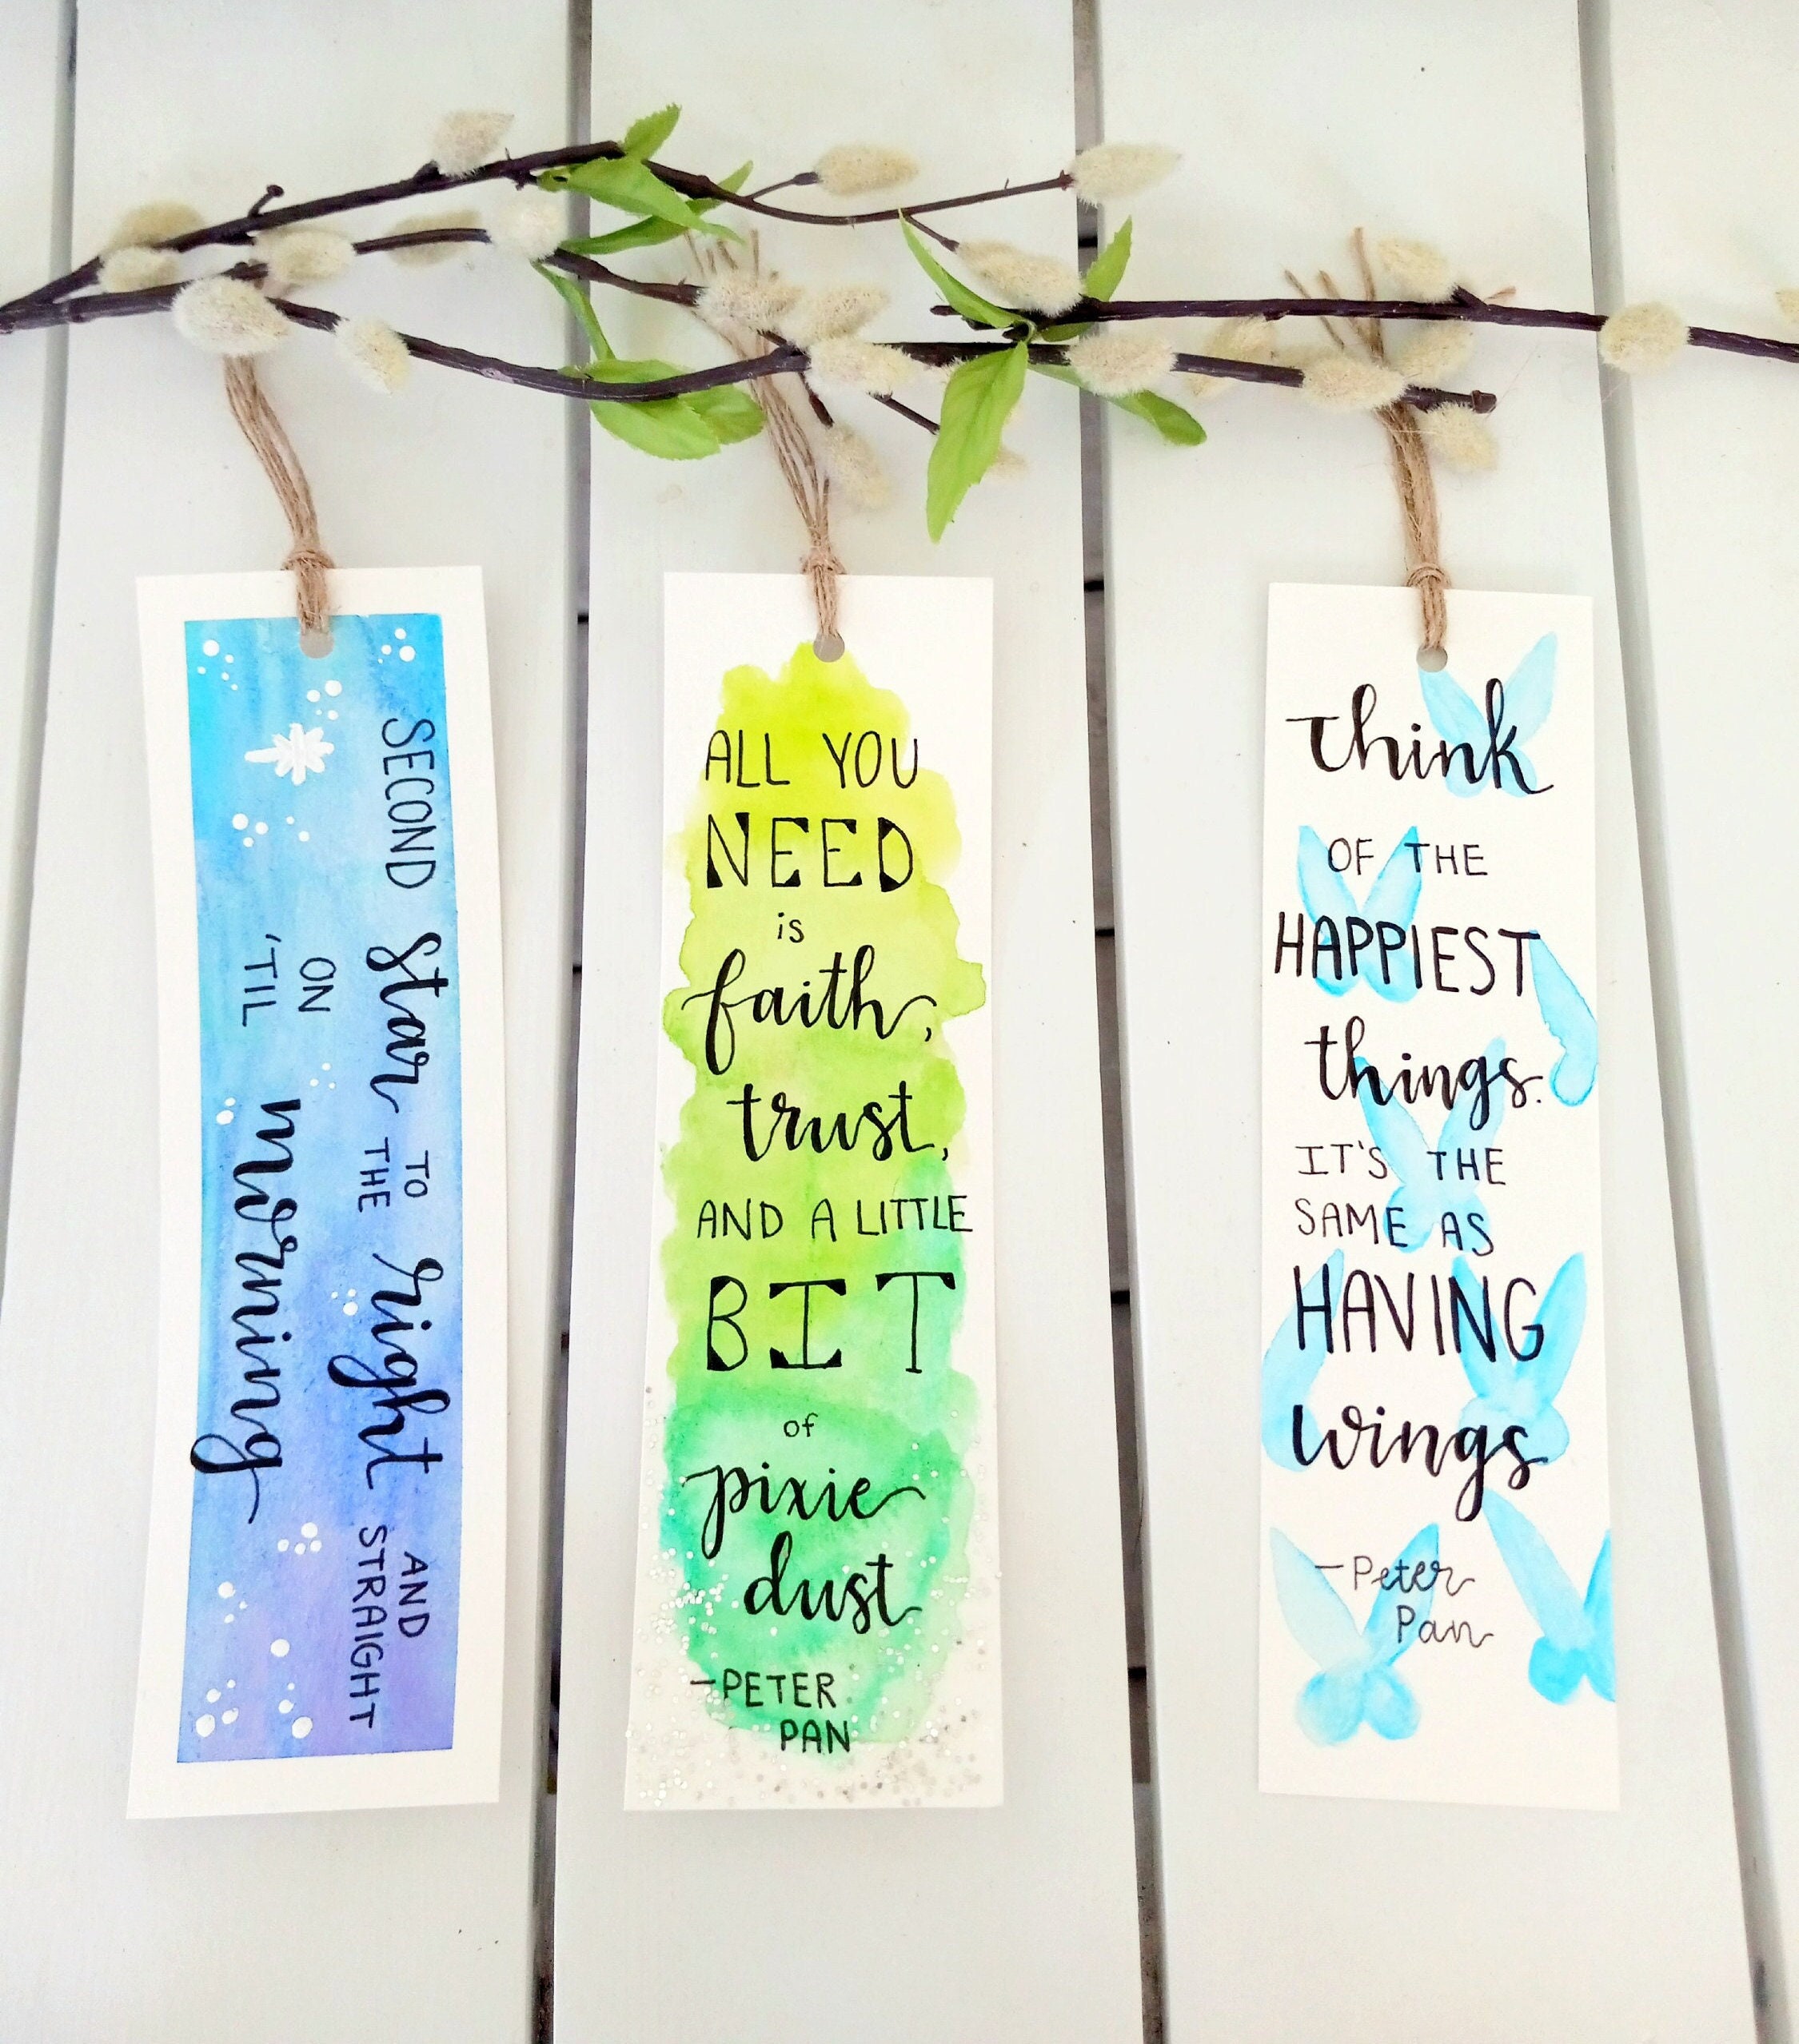 SECOND Star TO THE right AND STRAIGHT
ON 'TIL morning
ALL YOU
NEED
is
faith,
trust,
AND A LITTLE
BIT
of
pixie
dust
-PETER
PAN
Think
OF THE
HAPPIEST
things.
IT'S THE
SAME AS
HAVING
wings
-Peter
Pan